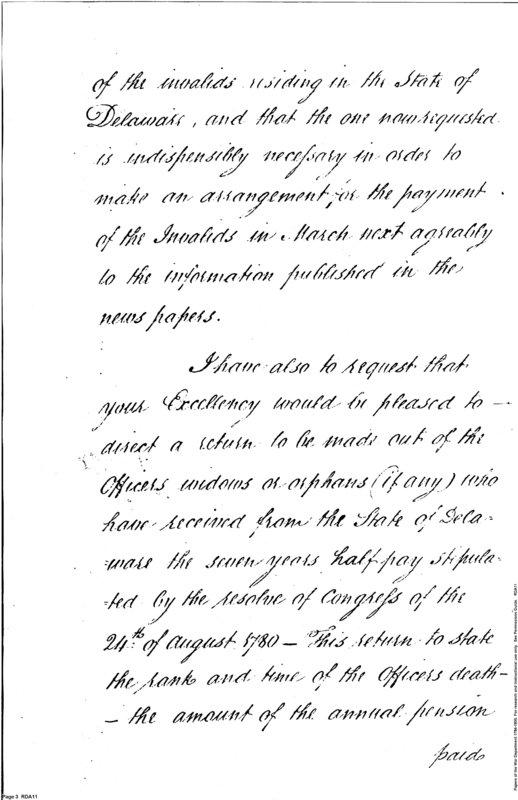 of the invalids residing in the State of
Delaware, and that the one now requested
is indispensibly necessary in order to
make an arrangement for the payment
of the Invalids in March next agreably
to the information published in the
news papers.
I have also to request that
your Excellency would be pleased to —
direct a return to be made out of the
Officers widows or orphans (if any) who
have received from the State of Dela-
ware the seven years half pay stipula-
ted by the resolve of Congress of the
24th of August 1780 — This return to state
the rank and time of the Officers death—
— the amount of the annual pension
paid
Page 3 RDA11
Papers of the War Department 1784-1800. For research and instructional use only. See Permissions Guide. RDA11